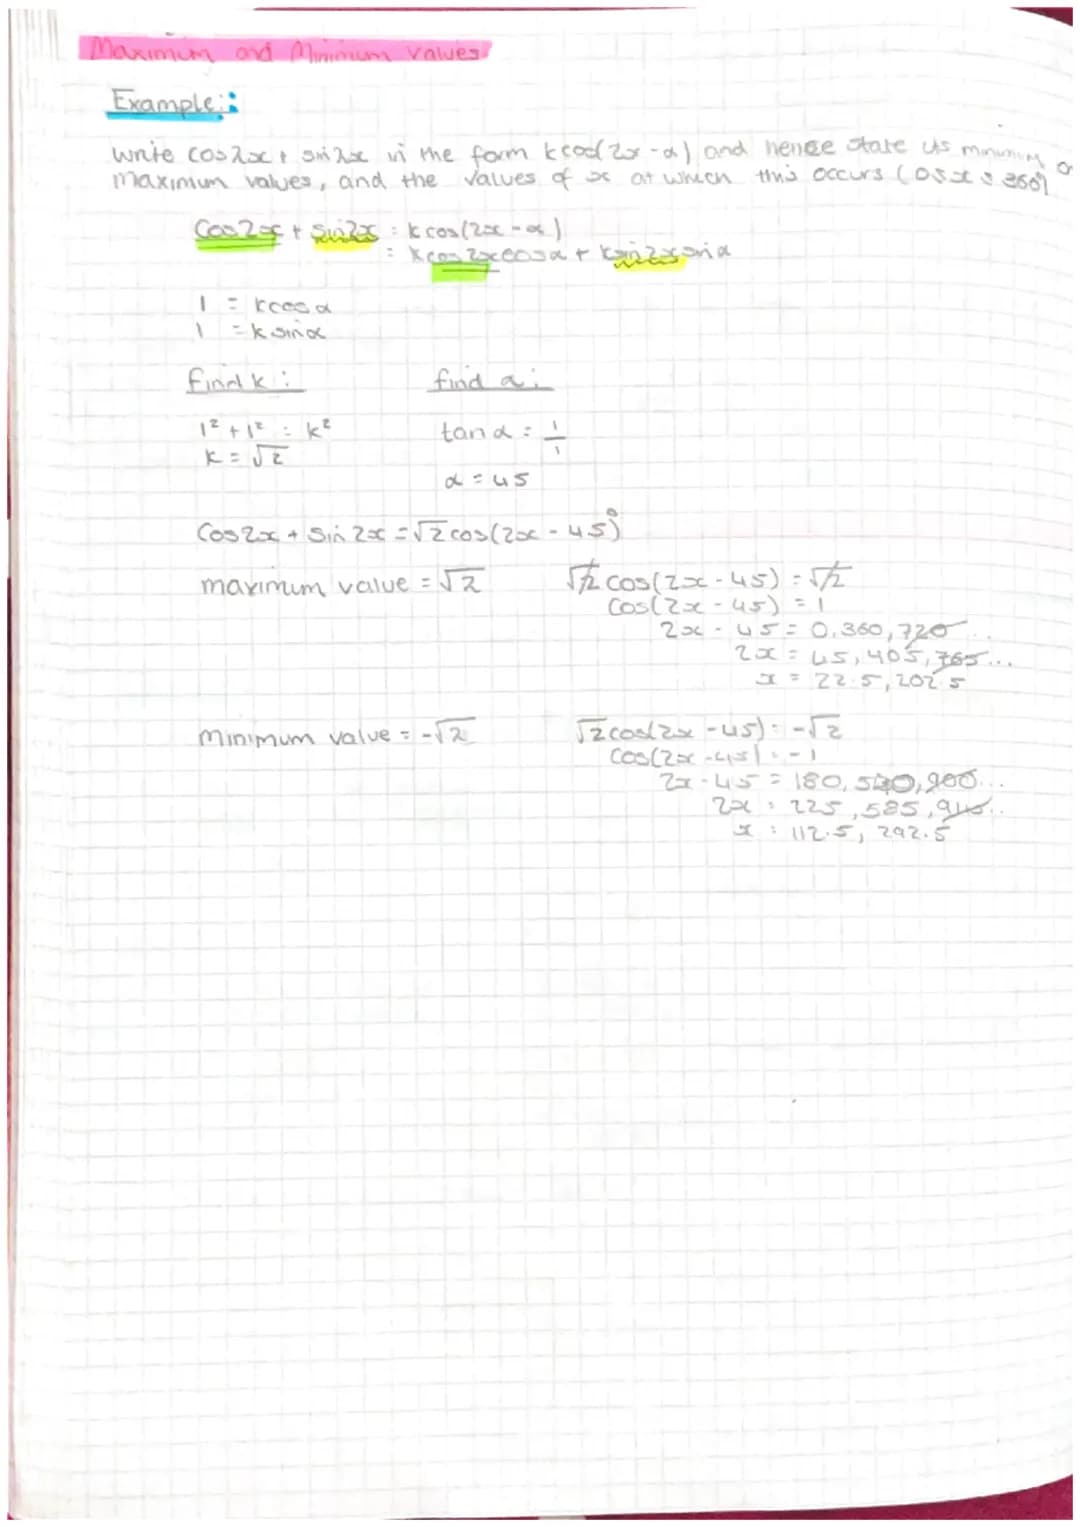 Maximum and Minimum values
Example:
Write cos2x + sin2x in the form kcos(2x-α) and hence state its minimum or
maximum values, and the values of x at which this occurs (0≤x≤360)
Cos2x + Sin2x = kcos(2x-α)
= kcos2xcosα + ksin2xsinα
1 = kcosα
1 = ksinα
find k: find α:
1² + 1² = k² tanα = 1/1
k = √2
α = 45
Cos2x + Sin2x = √2cos(2x - 45)°
maximum value = √2 √2cos(2x-45) = √2
cos(2x-45) = 1
2x - 45 = 0, 360, 720...
2x = 45, 405, 765...
x = 22.5, 202.5
minimum value = -√2 √2cos(2x-45) = -√2
cos(2x-45) = -1
2x-45 = 180, 540, 900...
2x = 225, 585, 945...
x = 112.5, 292.5